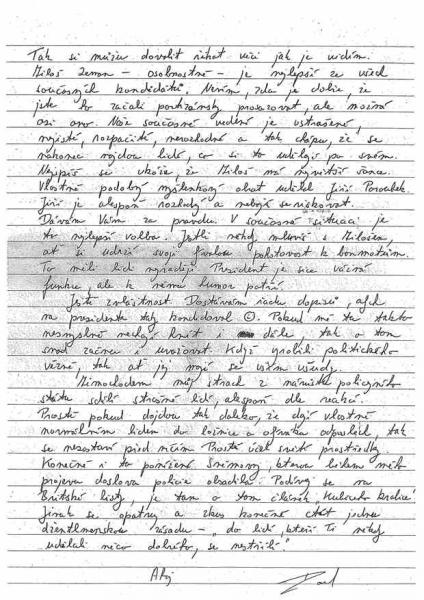 Tak si můžu dovolit říkat věci jak je vidím.
Miloš Zeman – osobnostně – je nejlepší ze všech
současných kandidátů. Nevím, zda je dobře, že
jste to začali partyzánsky prosazovat, ale možná
asi ano. Naše současné vedení je ustrašené,
nejisté, rozpačité, nerozhodné a tak chápu, že se
nakonec najdou lidé, co si to udělají po svém.
Nejspíš se ukáže, že Miloš má největší šance.
Vlastně podobný myšlenkový obrat udělal Jiří Paroubek.
Jiří je alespoň rozhodný a nebojí se riskovat.
Dávám Vám za pravdu. V současné situaci je
to nejlepší volba. Jestli někdy mluvíš s Milošem,
ať si udrží svoji pohotovost k bonmotům.
To mělo lidi nejraději. Prezident je sice vážná
funkce, ale k němu humor patří.
Ještě zvláštnost. Dostávám řadu dopisů, abych
na prezidenta taky kandidoval ☺. Pokud mě ta takto
nesmyslně nechají hnít i dále, tak o tom
snad začnu i uvažovat. Když vyrobili politického
vězně, tak ať jej mají se vším všudy.
Mimochodem – můj strach z nárůstu policejního
státu sdílí strašně lidí, alespoň dle reakcí.
Prostě pokud dojdou tak daleko, že dají vlastně
normálním lidem do ložnice a odposlech, tak
se nezastaví před ničím. Prostě účel světí prostředky.
Konečně i to ponížení Sněmovny, kterou během mého
projevu doslova policie obsadila. Podívej se na
Britské listy, je tam o tom článek
Jinak se opatruj a zkus konečně ctít jednu
džentlmenskou zásadu – „do lidí, kteří Ti někdy
udělali něco dobrého, se nestřílí."
Ahoj